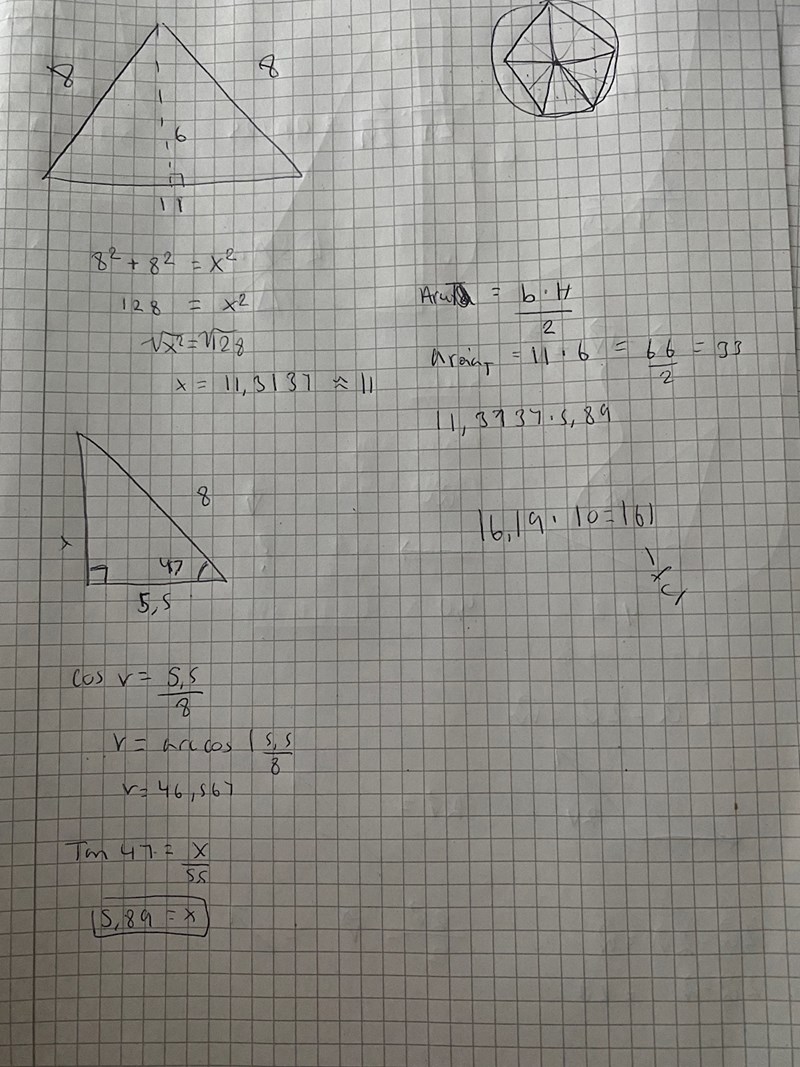 8
8
6
11
8² + 8² = x²
128 = x²
√x² = √128
x = 11,3137 ≈ 11
8
x
47
5,5
cos v = 5,5/8
v = arccos (5,5/8
v = 46,567
Tan 47 = x/55
5,89 = x
= b·H/2
AreaT = 11 · 6 = 66/2 = 33
11,3737 · 5,89
16,19 · 10 = 161